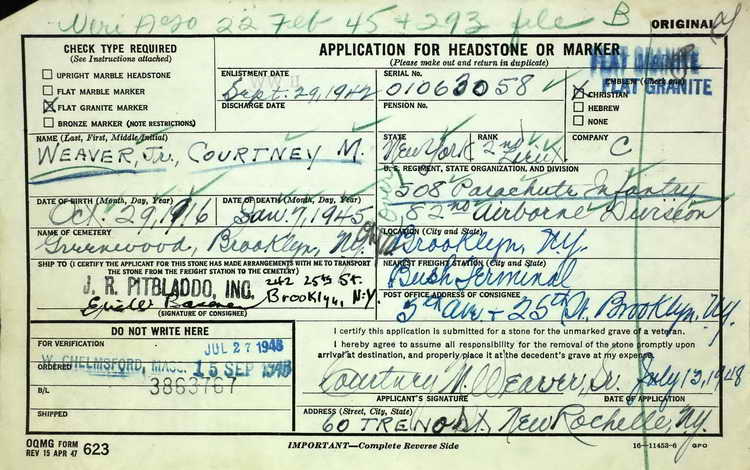 22 Feb 45 + 293 file B
ORIGINAL
CHECK TYPE REQUIRED
(See Instructions attached)
UPRIGHT MARBLE HEADSTONE
FLAT MARBLE MARKER
FLAT GRANITE MARKER
BRONZE MARKER (NOTE RESTRICTIONS)
APPLICATION FOR HEADSTONE OR MARKER
(Please make out and return in duplicate)
FLAT GRANITE
FLAT GRANITE
ENLISTMENT DATE
WW II
Sept. 29, 1942
DISCHARGE DATE
SERIAL No.
01063058
PENSION No.
EMBLEM (Check one)
CHRISTIAN
HEBREW
NONE
NAME (Last, First, Middle Initial)
WEAVER, Jr., COURTNEY M.
STATE
New York
RANK
2nd Lieut.
COMPANY
C
U. S. REGIMENT, STATE ORGANIZATION, AND DIVISION
508 Parachute Infantry
82nd Airborne Division
DATE OF BIRTH (Month, Day, Year)
Oct. 29, 1916
DATE OF DEATH (Month, Day, Year)
Jan. 7, 1945
NAME OF CEMETERY
Greenwood, Brooklyn, N.Y.
LOCATION (City and State)
Brooklyn, N.Y.
SHIP TO (I CERTIFY THE APPLICANT FOR THIS STONE HAS MADE ARRANGEMENTS WITH ME TO TRANSPORT THE STONE FROM THE FREIGHT STATION TO THE CEMETERY)
J. R. PITBLADDO, INC.
242 25th St.
Brooklyn, N.Y.
(SIGNATURE OF CONSIGNEE)
NEAREST FREIGHT STATION (City and State)
Bush Terminal
POST OFFICE ADDRESS OF CONSIGNEE
5th Ave + 25th St. Brooklyn, N.Y.
DO NOT WRITE HERE
FOR VERIFICATION
JUL 27 1948
ORDERED
W. CHELMSFORD, MASS. 15 SEP 1948
B/L
3863767
SHIPPED
I certify this application is submitted for a stone for the unmarked grave of a veteran.
I hereby agree to assume all responsibility for the removal of the stone promptly upon
arrival at destination, and properly place it at the decedent's grave at my expense.
Courtney M. Weaver, Sr. July 13, 1948
APPLICANT'S SIGNATURE
DATE OF APPLICATION
ADDRESS (Street, City, State)
60 TRENOR DR. New Rochelle, N.Y.
OQMG FORM
REV 15 APR 47 623
IMPORTANT—Complete Reverse Side
16—11453-6 GPO